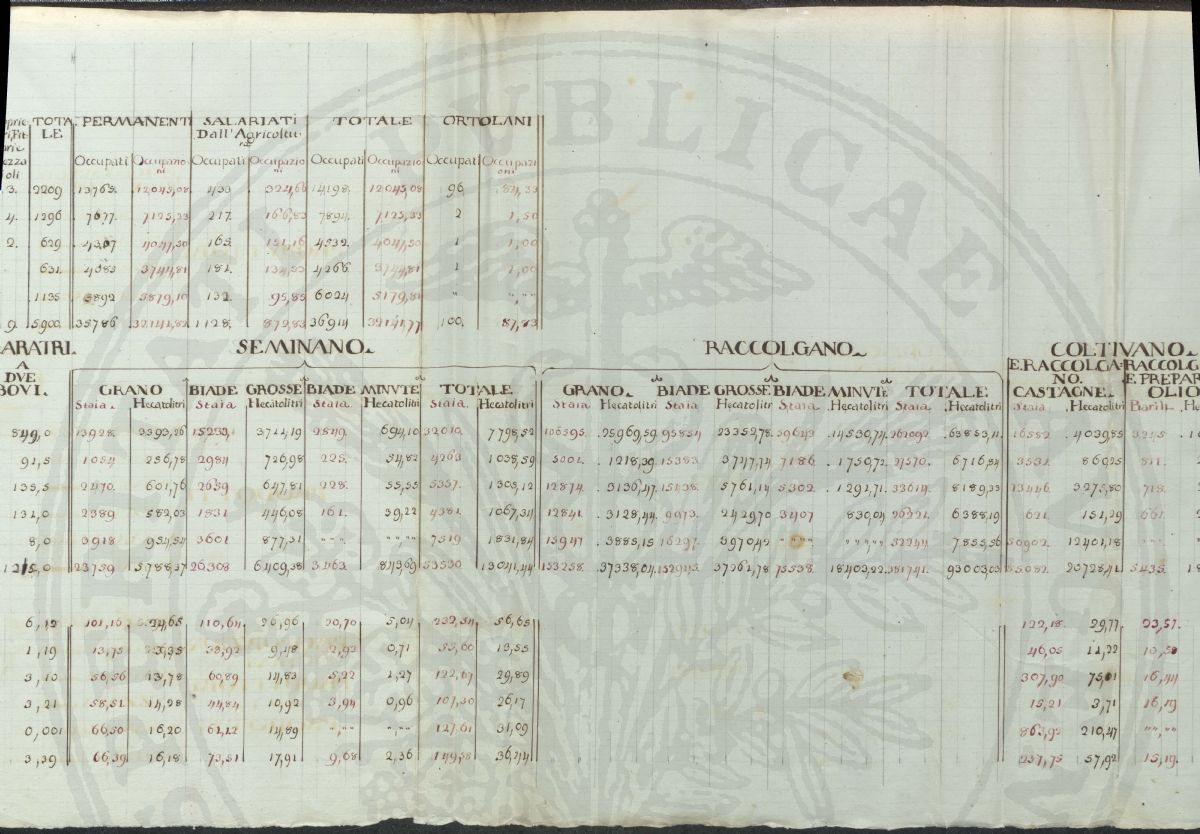 TOTA PERMANENTI SALARIATI TOTALE ORTOLANI
LE. Dall'Agricoltu
ra
Occupati Occupazio Occupati Occupazio Occupati Occupazio Occupati Occupazi
ni ni ni oni
3. 2209 13765. 12045,08 433. 324,66 14198. 12045,08 96. 84,33
4. 1296 7677. 7125,33 217. 166,83 7894. 7125,33 2 1,50
2. 629 4367 4041,50 165. 151,16 4532. 4041,50 1 1,00
631. 4085 3744,81 181. 134,35 4266 3744,81 1 1,00
1135 5892 5879,10 132. 95,83 6024 5179,81 " ","
9. 5900. 35786 1128. 872,83 36914 32141,77 100. 87,83
ARATRI. SEMINANO. RACCOLGANO. COLTIVANO.
A E. RACCOLGA RACCOLG
DVE NO. E PREPAR
BOVI. GRANO BIADE GROSSE BIADE MINVTE TOTALE. GRANO. BIADE GROSSE BIADE MINVTE TOTALE. CASTAGNE. OLIO
Staia. Hecatolitri Staia Hecatolitri Staia Hecatolitri Staia. Hecatolitri Staia. Hecatolitri Staia. Hecatolitri Staia. Hecatolitri Staia. Hecatolitri Staia. Hecatolitri Barili.
849,0 13928. 3393,26 3711,19 2849. 694,10 32010. 7798,52 106595. 25969,59 95854 23352,78. 59643 14530,74 262092. 63853,11 16582. 4039,85 3245
91,5 1054 256,78 2984 726,98 225. 54,82 4263 1038,59 5001. 1218,39 15383. 3747,74 7186. 1750,72 27570. 6716,84 3532. 860,25 811.
135,5 2470. 601,76 2659 647,81 228. 55,55 5357. 1305,12 12874. 3136,47 15438. 5761,14 5302. 1291,71 33614. 8189,33 13446. 3275,80 718.
131,0 2389 582,03 1831 446,08 161. 39,22 4381. 1067,34 12841. 3128,44 9973. 2429,70 3407 830,04 26221. 6388,19 621. 151,29 661.
8,0 3918 954,54 3601 877,31 " " " " " " " 7519 1831,84 15947 3885,15 16297. 3970,42 " " " " " " " 32244 7855,56 50902. 12401,18
1215,0 23759 5788,37 26308 6409,38 3463. 843,69 53530 13041,44 153258. 37338,04 152945. 37261,78 75538. 18403,22 381741. 93003,03 85082. 20728,41 5435.
6,12 101,16 24,65 110,64 26,96 20,70 5,04 232,54 56,65 122,18. 29,77 23,57.
1,19 13,75 38,92 9,48 2,93 0,71 55,60 13,55 46,05 11,22 10,58
3,10 56,56 13,78 60,89 14,83 5,22 1,27 122,67 29,89 307,90 75,01 16,44
3,21 58,51 14,28 44,84 10,92 3,94 0,96 107,30 26,17 15,21 3,71 16,19
0,001 66,50 16,20 61,12 14,89 " " " " " " 127,61 31,09 863,92 210,47 " " " "
3,39 66,39 16,18 73,51 17,91 9,68 2,36 149,58 36,44 237,75 57,92 15,19.